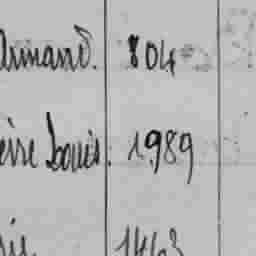 Armand. 804
erre Louis. 1989
1463